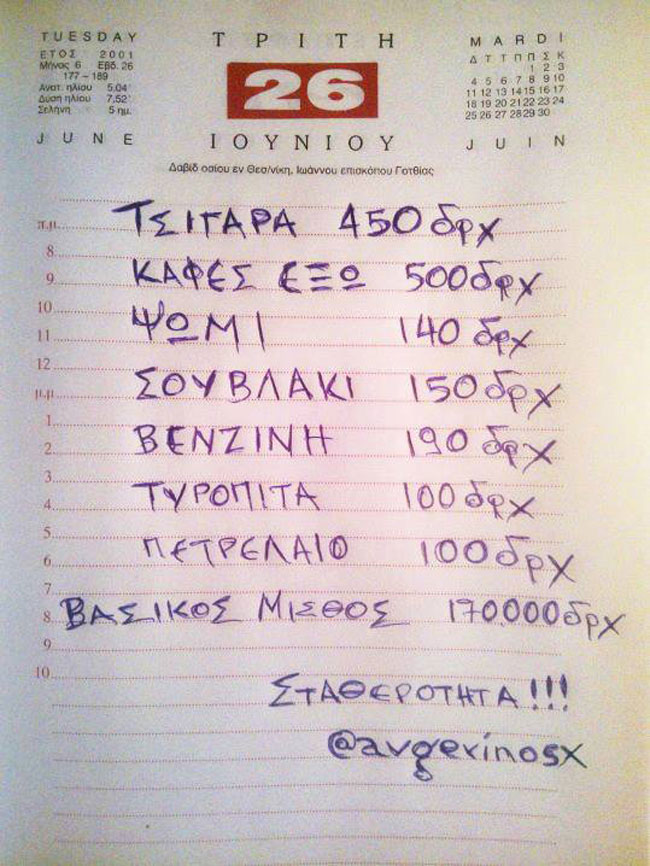 TUESDAY
ΕΤΟΣ 2001
Μήνας 6 Εβδ. 26
177 – 189
Ανατ. ηλίου 5.04΄
Δύση ηλίου 7.52΄
Σελήνη 5 ημ.
JUNE
ΤΡΙΤΗ
26
ΙΟΥΝΙΟΥ
MARDI
Δ Τ Τ Π Π Σ Κ
1 2 3
4 5 6 7 8 9 10
11 12 13 14 15 16 17
18 19 20 21 22 23 24
25 26 27 28 29 30
JUIN
Δαβίδ οσίου εν Θεσ/νίκη, Ιωάννου επισκόπου Γοτθίας
π.μ. ΤΣΙΓΑΡΑ 450 δρχ
8
9 ΚΑΦΕΣ ΕΞΩ 500 δρχ
10
11 ΨΩΜΙ 140 δρχ
12
μ.μ. ΣΟΥΒΛΑΚΙ 150 δρχ
1
2 ΒΕΝΖΙΝΗ 190 δρχ
3
4 ΤΥΡΟΠΙΤΑ 100 δρχ
5
6 ΠΕΤΡΕΛΑΙΟ 100 δρχ
7
8 ΒΑΣΙΚΟΣ ΜΙΣΘΟΣ 170.000 δρχ
9
10 ΣΤΑΘΕΡΟΤΗΤΑ!!!
@avgerinosx